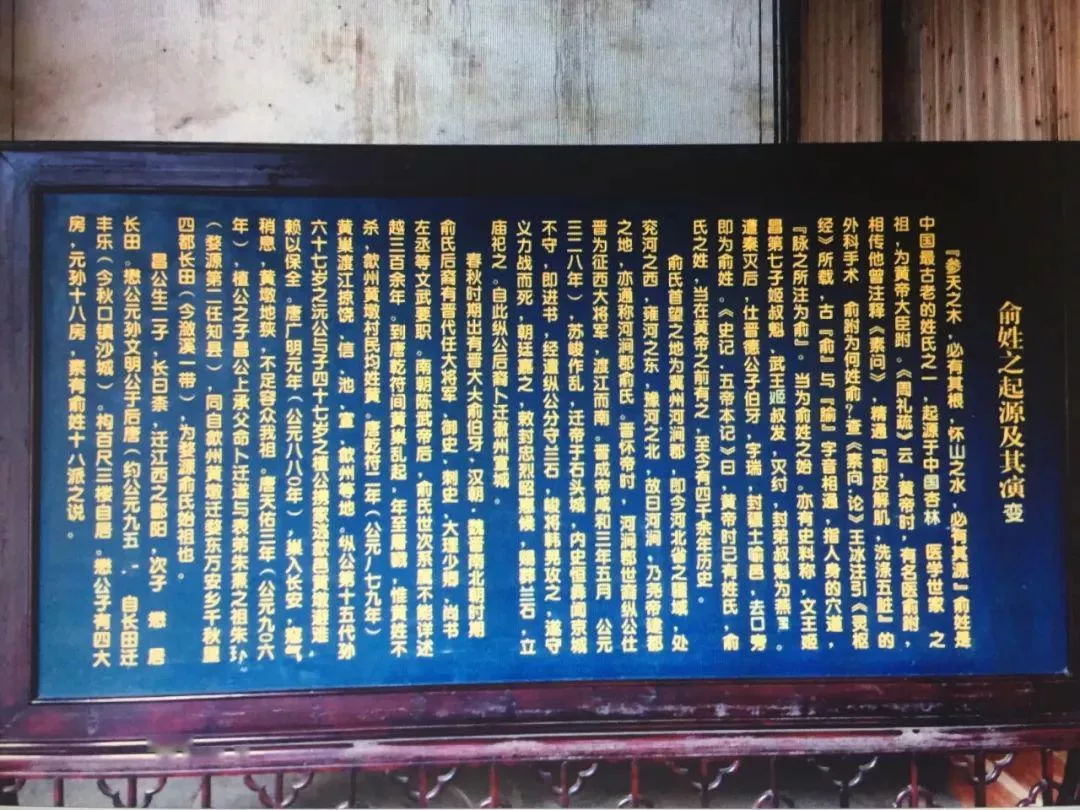 俞姓之起源及其演变
『参天之木，必有其根，怀山之水，必有其源』俞姓是
中国最古老的姓氏之一，起源于中国杏林 医学世家 之
祖，为黄帝大臣跗。《周礼疏》云，黄帝时，有名医俞跗，
相传他曾注释《素问》，精通『割皮解肌，洗涤五脏』的
外科手术 俞跗为何姓俞？查《素问·论》王冰注引《灵枢
经》所载，古『俞』与『腧』字音相通，指人身的穴道，
『脉之所注为俞』。当为俞姓之始。亦有史料称，文王姬
昌第七子姬叔魁，武王姬叔发，灭纣，封弟叔魁为燕
遭秦灭后，仕晋德公子伯牙，字瑞，封疆土喻邑，去口旁
即为俞姓。《史记，五帝本记》曰，黄帝时已有姓氏，俞
氏之姓，当在黄帝之前有之 至今有四千余年历史。
俞氏首望之地为冀州河涧郡，即今河北省之疆域，处
兖河之西，雍河之东，豫河之北，故曰河涧，乃尧帝建都
之地，亦通称河涧郡俞氏。晋怀帝时，河涧郡世裔纵公仕
晋为征西大将军，渡江而南。晋成帝咸和三年五月 公元
三二八年），苏峻作乱，迁帝于石头城，内史恒彝闻京城
不守，即进书，经遣纵公分守兰石，峻将韩晃攻之，遂守
义力战而死，朝廷嘉之 敕封忠烈昭惠候，赐葬兰石，立
庙祀之。自此纵公后裔卜迁徽州萱城。
春秋时期出有晋大夫俞伯牙，汉朝·魏晋南北朝时期
俞氏后裔有晋代任大将军，御史，刺史，大理少卿，尚书
左丞等文武要职。南朝陈武帝后，俞氏世次条属不能详述
越三百余年。到唐乾符间黄巢乱起，年至篡弑，惟黄姓不
杀，歙州黄墩村民均姓黄。唐乾符二年（公元八七九年）
黄巢渡江掠饶，信，池，宣，歙州等地。纵公第十五代孙
六十七岁之沅公与子四十七岁之植公携家逃歙邑黄墩避难，
赖以保全。唐广明元年（公元八八〇年），巢入长安，寇气
稍息，黄墩地狭，不足容众我祖。唐天佑三年（公元九〇六
年）植公之子昌公上承父命卜迁遂与表弟朱熹之祖朱
（婺源第二任知县），同自歙州黄墩迁婺东万安乡千秋里
四都长田（今潋溪一带），为婺源俞氏始祖也。
昌公生二子，长曰柰，迁江西之鄱阳，次子 懋 居
长田。懋公元孙文明公于后唐（约公元九五 自长田迁
丰乐（今秋口镇沙城）。构百尺三楼自居。懋公子有四大
房，元孙十八房，素有俞姓十八派之说。